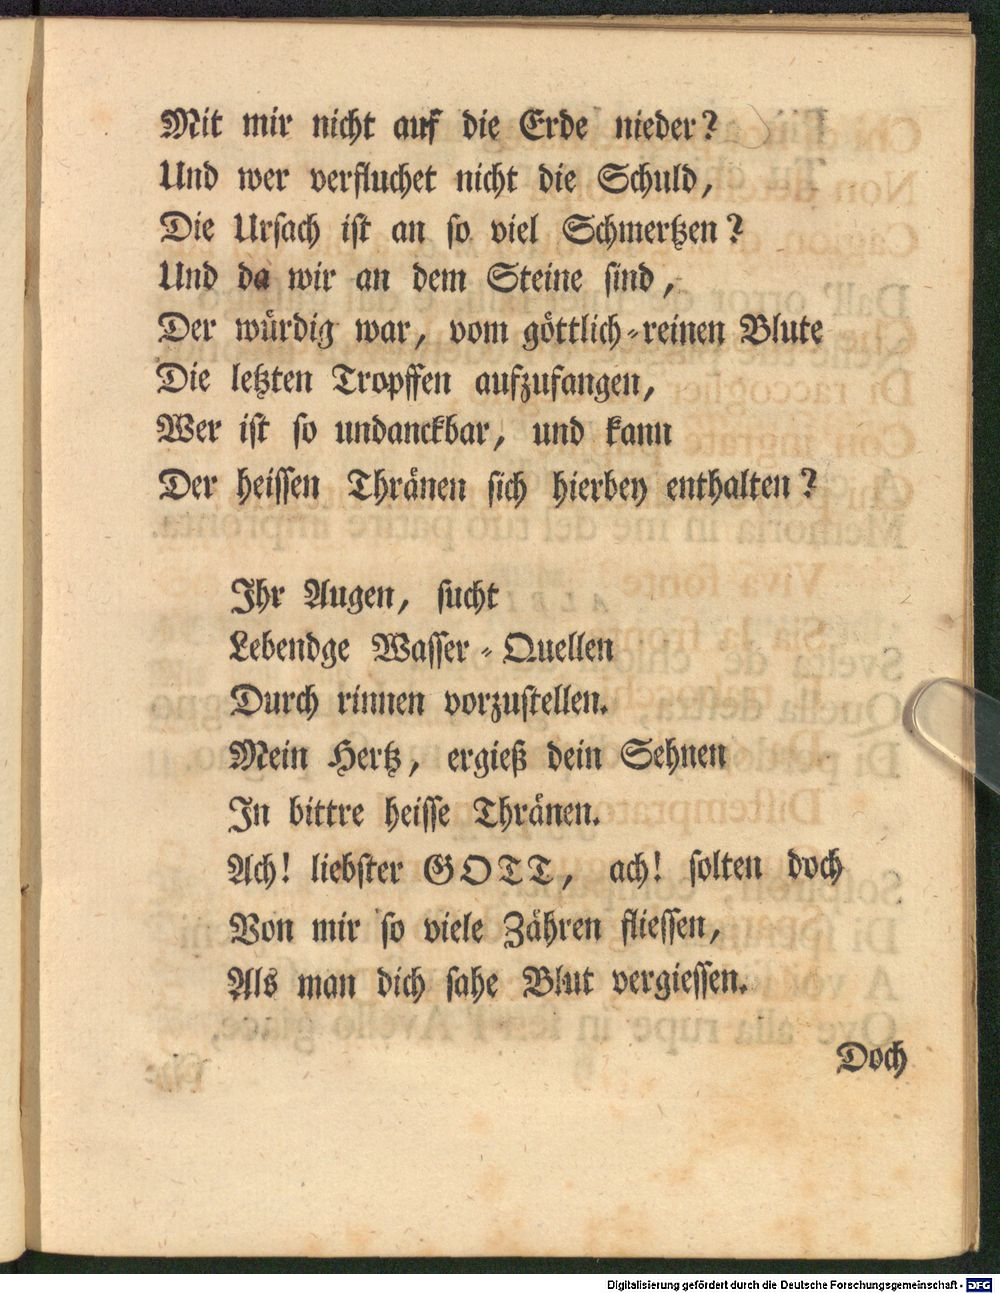 Mit mir nicht auf die Erde nieder?
Und wer verfluchet nicht die Schuld,
Die Ursach ist an so viel Schmertzen?
Und da wir an dem Steine sind,
Der würdig war, vom göttlich-reinen Blute
Die letzten Tropffen aufzufangen,
Wer ist so undanckbar, und kann
Der heissen Thränen sich hierbey enthalten?
Ihr Augen, sucht
Lebendge Wasser-Quellen
Durch rinnen vorzustellen.
Mein Hertz, ergieß dein Sehnen
In bittre heisse Thränen.
Ach! liebster GOTT, ach! solten doch
Von mir so viele Zähren fliessen,
Als man dich sahe Blut vergiessen.
Doch
Digitalisierung gefördert durch die Deutsche Forschungsgemeinschaft - DFG